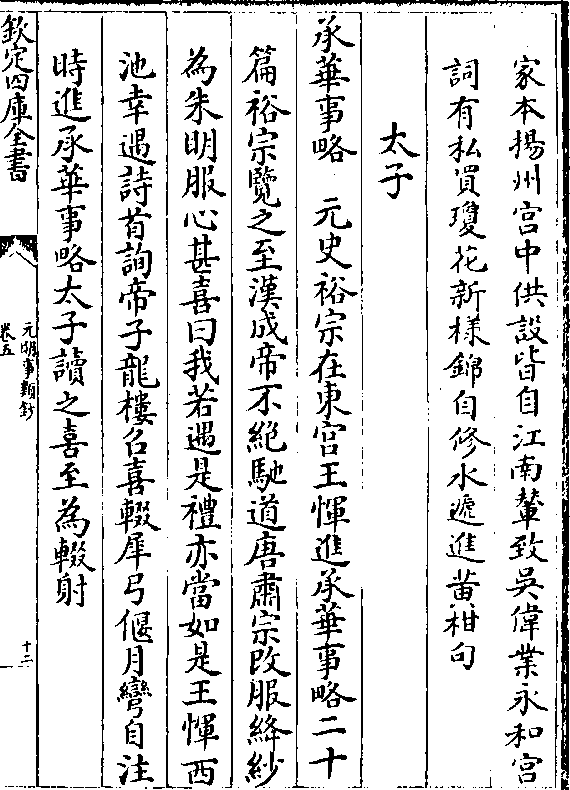 家本揚州宫中供設皆自江南輦致吳偉業永和宫
詞有私買瓊花新様錦自修水遞進黄柑句
太子
承華事略　元史裕宗在東宫王惲進承華事略二十
篇裕宗覽之至漢成帝不絶馳道唐肅宗改服絳紗
為朱明服心甚喜曰我若遇是禮亦當如是王惲西
池幸遇詩首詢帝子龍樓召喜輟犀弓偃月彎自注
時進承華事略太子讀之喜至為輟射
欽定四庫全書
元明事類鈔
卷五
十二